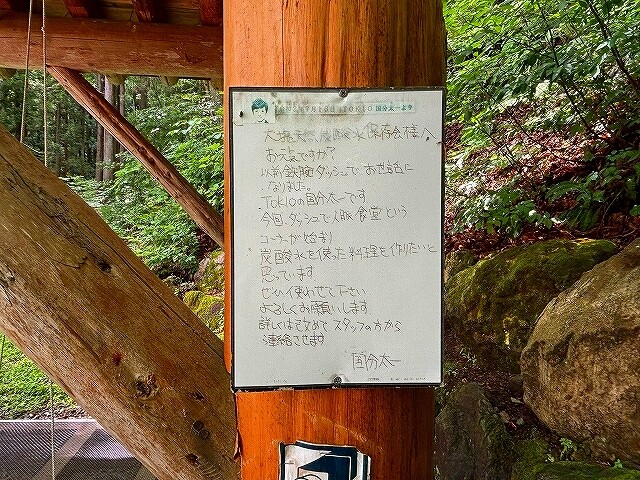 TOKIO 国分太一より
大塩天然炭酸水保存会様へ
お元気ですか?
以前鉄腕ダッシュでお世話に
なりました。
TOKIOの国分太一です
今回ダッシュで0円食堂という
コーナーが始まり
炭酸水を使った料理を作りたいと
思っています
ぜひ使わせて下さい
よろしくお願いします
詳しくはスタッフの方から
連絡させます
国分太一